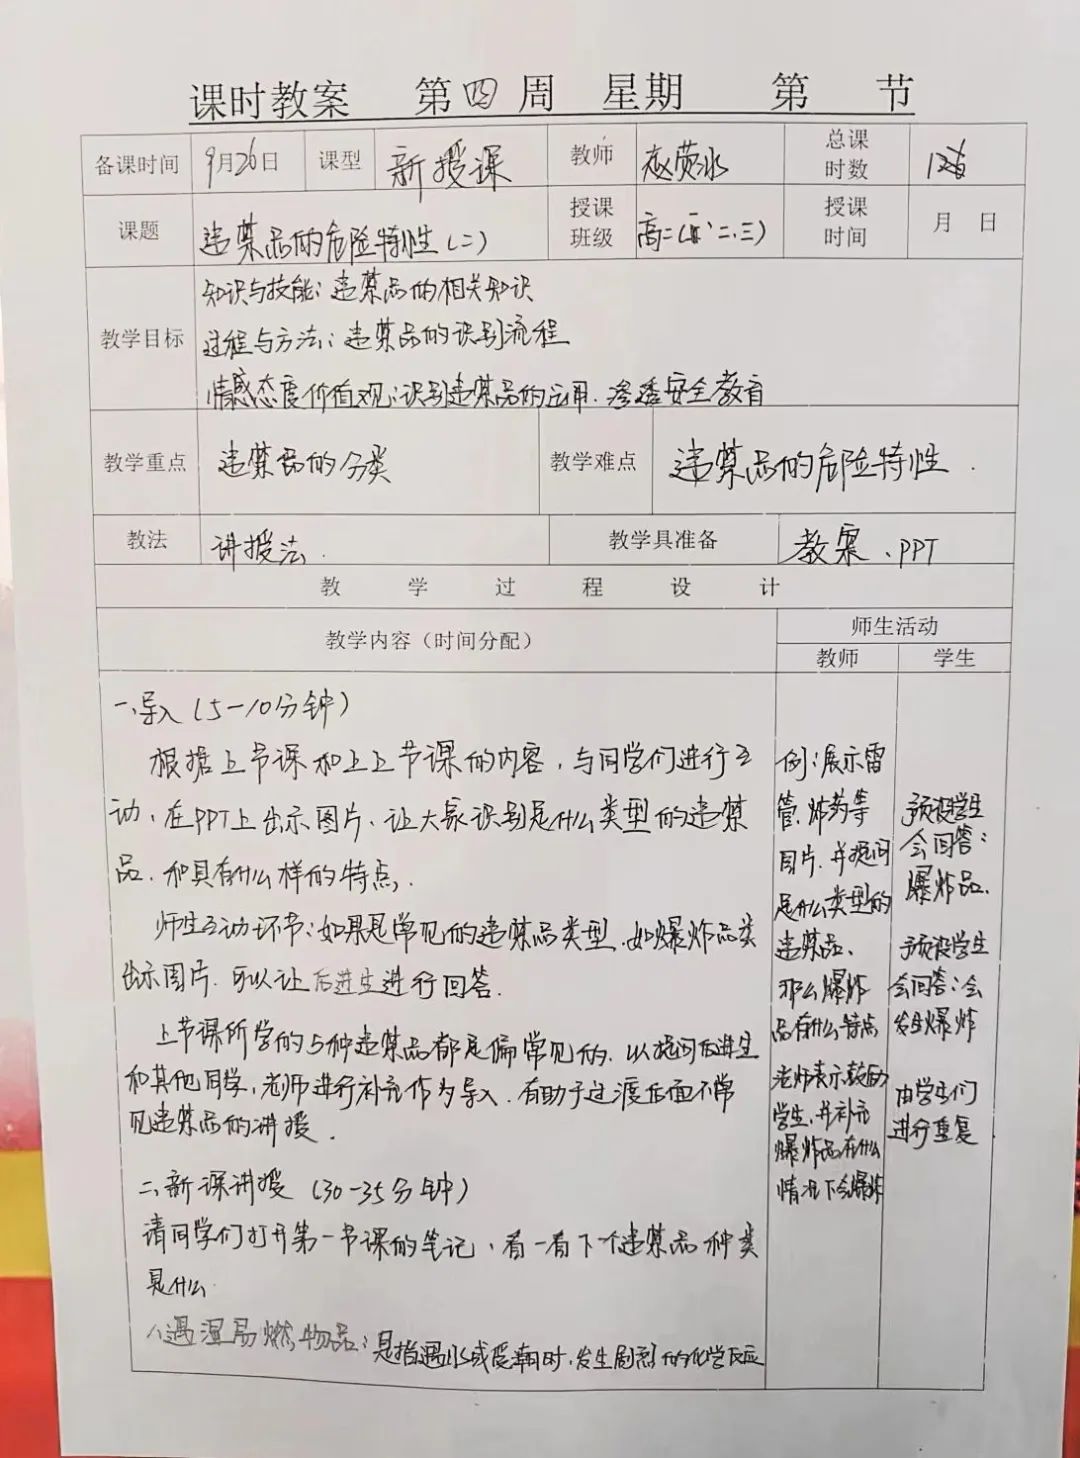 课时教案 第四周 星期 第 节
备课时间 9月26日 课型 新授课 教师 赵荧冰 总课时数
课题 违禁品的危险特性(二) 授课班级 高二(二、三) 授课时间 月 日
教学目标 知识与技能:违禁品的相关知识
过程与方法:违禁品的识别流程
情感态度价值观:识别违禁品的运用.渗透安全教育
教学重点 违禁品的分类 教学难点 违禁品的危险特性.
教法 讲授法. 教学具准备 教案、PPT
教学过程设计
教学内容(时间分配) 师生活动
教师 学生
一、导入(5-10分钟)
根据上节课和上上节课的内容,与同学们进行互
动,在PPT上出示图片,让大家识别是什么类型的违禁
品,和具有什么样的特点.
师生互动环节:如果是常见的违禁品类型,如爆炸品类
出示图片.可以让后进生进行回答.
上节课所学的5种违禁品都是偏常见的,以提问后进生
和其他同学,老师进行补充作为导入.有助于过渡后面不常
见违禁品的讲授.
二、新课讲授(30-35分钟)
请同学们打开第一节课的笔记,看一看下个违禁品种类
是什么.
1、遇湿易燃物品:是指遇水或受潮时,发生剧烈的化学反应
例:展示雷
管、炸药等
图片,并提问
是什么类型的
违禁品.
那么爆炸
品有什么特点
老师表示鼓励
学生,并补充
爆炸品在什么
情况下会爆炸
预设学生
会回答:
爆炸品.
预设学生
会回答:会
发生爆炸
由学生们
进行重复